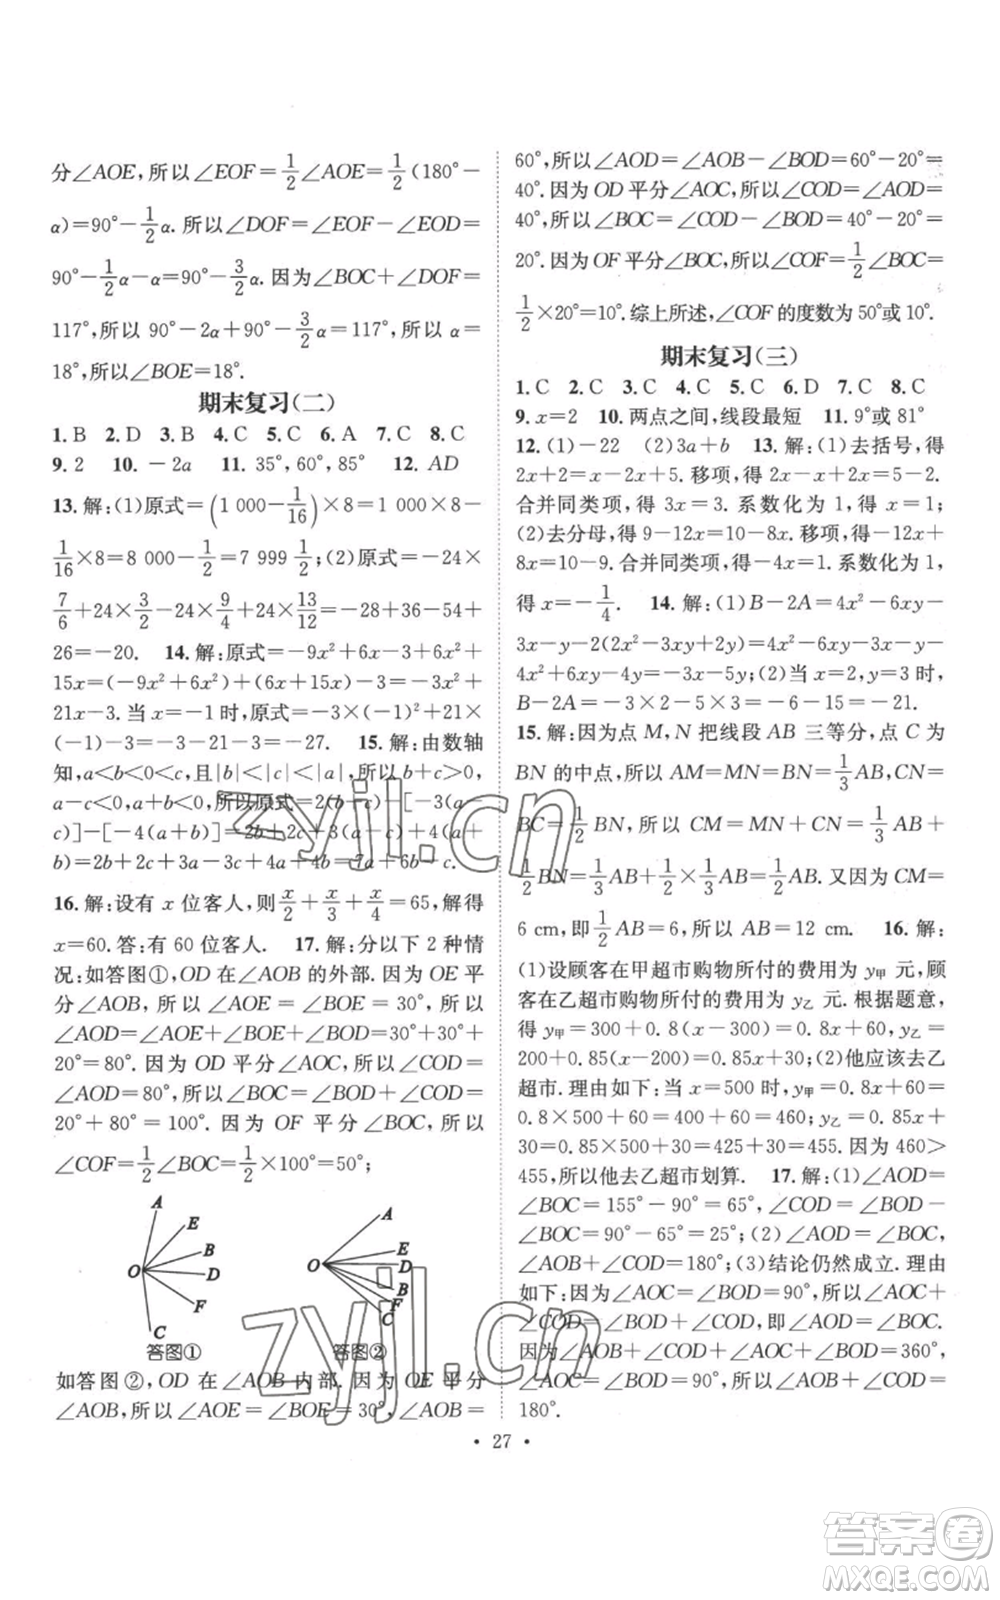 分∠AOE,所以∠EOF=1/2∠AOE=1/2(180°-
α)=90°-1/2α.所以∠DOF=∠EOF-∠EOD=
90°-1/2α-α=90°-3/2α.因为∠BOC+∠DOF=
117°,所以 90°-2α+90°-3/2α=117°,所以 α=
18°,所以∠BOE=18°.
期末复习(二)
1.B 2.D 3.B 4.C 5.C 6.A 7.C 8.C
9.2 10.-2a 11.35°,60°,85° 12.AD
13.解:(1)原式=(1 000-1/16)×8=1 000×8-
1/16×8=8 000-1/2=7 999 1/2;(2)原式=-24×
7/6+24×3/2-24×9/4+24×13/12=-28+36-54+
26=-20. 14.解:原式=-9x²+6x-3+6x²+
15x=(-9x²+6x²)+(6x+15x)-3=-3x²+
21x-3.当 x=-1 时,原式=-3×(-1)²+21×
(-1)-3=-3-21-3=-27. 15.解:由数轴
知,a<b<0<c,且|b|<|c|<|a|,所以 b+c>0,
a-c<0,a+b<0,所以原式=2(b+c)-[-3(a-
c)]-[-4(a+b)]=2b+2c+3(a-c)+4(a+
b)=2b+2c+3a-3c+4a+4b=7a+6b-c.
16.解:设有 x 位客人,则x/2+x/3+x/4=65,解得
x=60.答:有 60 位客人. 17.解:分以下 2 种情
况:如答图①,OD 在∠AOB 的外部.因为 OE 平
分∠AOB,所以∠AOE=∠BOE=30°,所以
∠AOD=∠AOE+∠BOE+∠BOD=30°+30°+
20°=80°.因为 OD 平分∠AOC,所以∠COD=
∠AOD=80°,所以∠BOC=∠BOD+∠COD=
20°+80°=100°.因为 OF 平分∠BOC,所以
∠COF=1/2∠BOC=1/2×100°=50°;
A
E
B
O
D
F
C
答图①
A
E
O
D
B
F
C
答图②
如答图②,OD 在∠AOB 内部.因为 OE 平分
∠AOB,所以∠AOE=∠BOE=30°,∠AOB=
60°,所以∠AOD=∠AOB-∠BOD=60°-20°=
40°.因为 OD 平分∠AOC,所以∠COD=∠AOD=
40°,所以∠BOC=∠COD-∠BOD=40°-20°=
20°.因为 OF 平分∠BOC,所以∠COF=1/2∠BOC=
1/2×20°=10°.综上所述,∠COF的度数为50°或10°.
期末复习(三)
1.C 2.C 3.C 4.C 5.C 6.D 7.C 8.C
9.x=2 10.两点之间,线段最短 11.9°或 81°
12.(1)-22 (2)3a+b 13.解:(1)去括号,得
2x+2=-x+2x+5.移项,得 2x-x+x=5-2.
合并同类项,得 3x=3.系数化为 1,得 x=1;
(2)去分母,得 9-12x=10-8x.移项,得-12x+
8x=10-9.合并同类项,得-4x=1.系数化为1,
得 x=-1/4. 14.解:(1)B-2A=4x²-6xy-
3x-y-2(2x²-3xy+2y)=4x²-6xy-3x-y-
4x²+6xy-4y=-3x-5y;(2)当 x=2,y=3 时,
B-2A=-3×2-5×3=-6-15=-21.
15.解:因为点 M,N 把线段 AB 三等分,点 C 为
BN 的中点,所以 AM=MN=BN=1/3AB,CN=
BC=1/2BN,所以 CM=MN+CN=1/3AB+
1/2BN=1/3AB+1/2×1/3AB=1/2AB.又因为 CM=
6 cm,即1/2AB=6,所以 AB=12 cm. 16.解:
(1)设顾客在甲超市购物所付的费用为 y甲 元,顾
客在乙超市购物所付的费用为 y乙 元.根据题意,
得 y甲=300+0.8(x-300)=0.8x+60,y乙=
200+0.85(x-200)=0.85x+30;(2)他应该去乙
超市.理由如下:当 x=500 时,y甲=0.8x+60=
0.8×500+60=400+60=460;y乙=0.85x+
30=0.85×500+30=425+30=455.因为 460>
455,所以他去乙超市划算. 17.解:(1)∠AOD=
∠BOC=155°-90°=65°,∠COD=∠BOD-
∠BOC=90°-65°=25°;(2)∠AOD=∠BOC,
∠AOB+∠COD=180°;(3)结论仍然成立.理由
如下:因为∠AOC=∠BOD=90°,所以∠AOC+
∠COD=∠BOD+∠COD,即∠AOD=∠BOC.
因为∠AOB+∠COD+∠AOC+∠BOD=360°,
∠AOC=∠BOD=90°,所以∠AOB+∠COD=
180°.
· 27 ·
zyjl.cn
zyjl.cn
答案圈
MXQE.COM